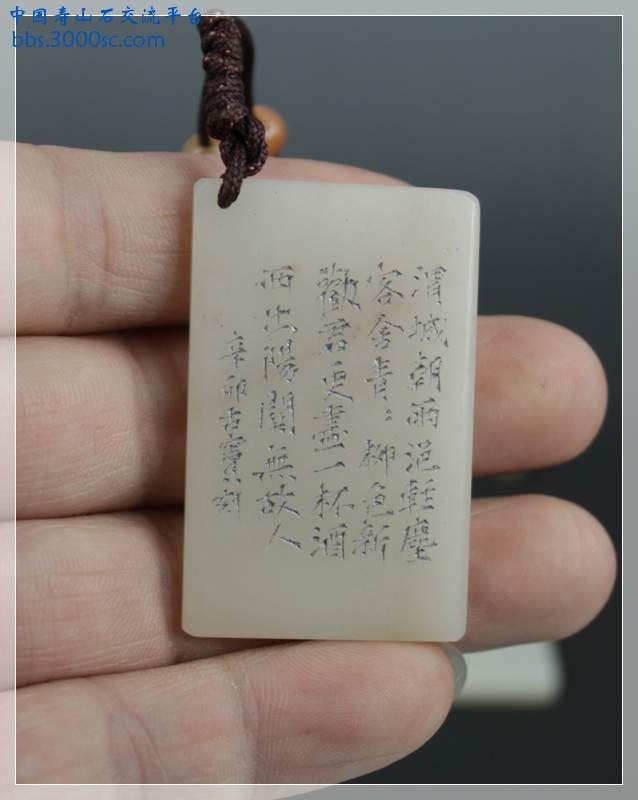 中国寿山石交流平台
bbs.3000sc.com
渭城朝雨浥輕塵
客舍青〻柳色新
勸君更盡一杯酒
西出陽關無故人
辛卯古寶刻